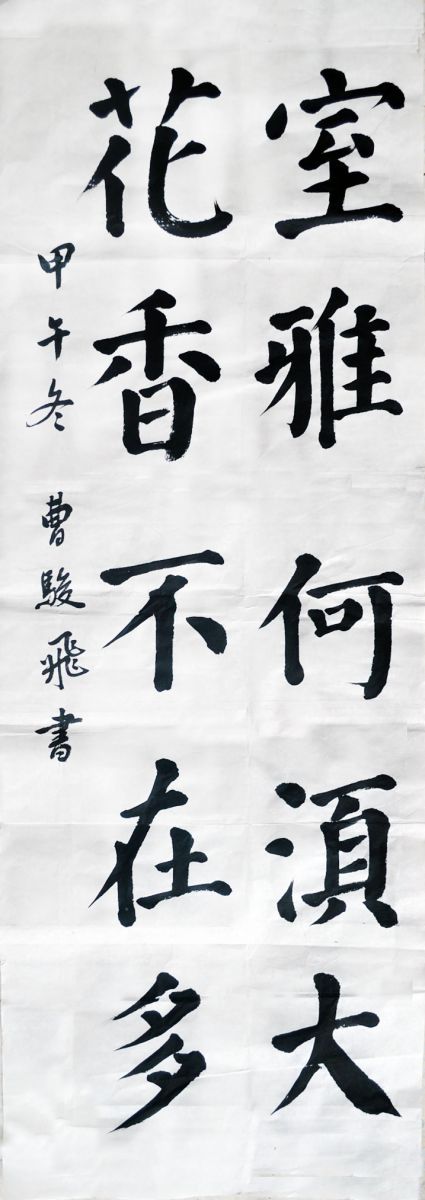 室雅何湏大
花香不在多
甲午冬 曹駿飛書